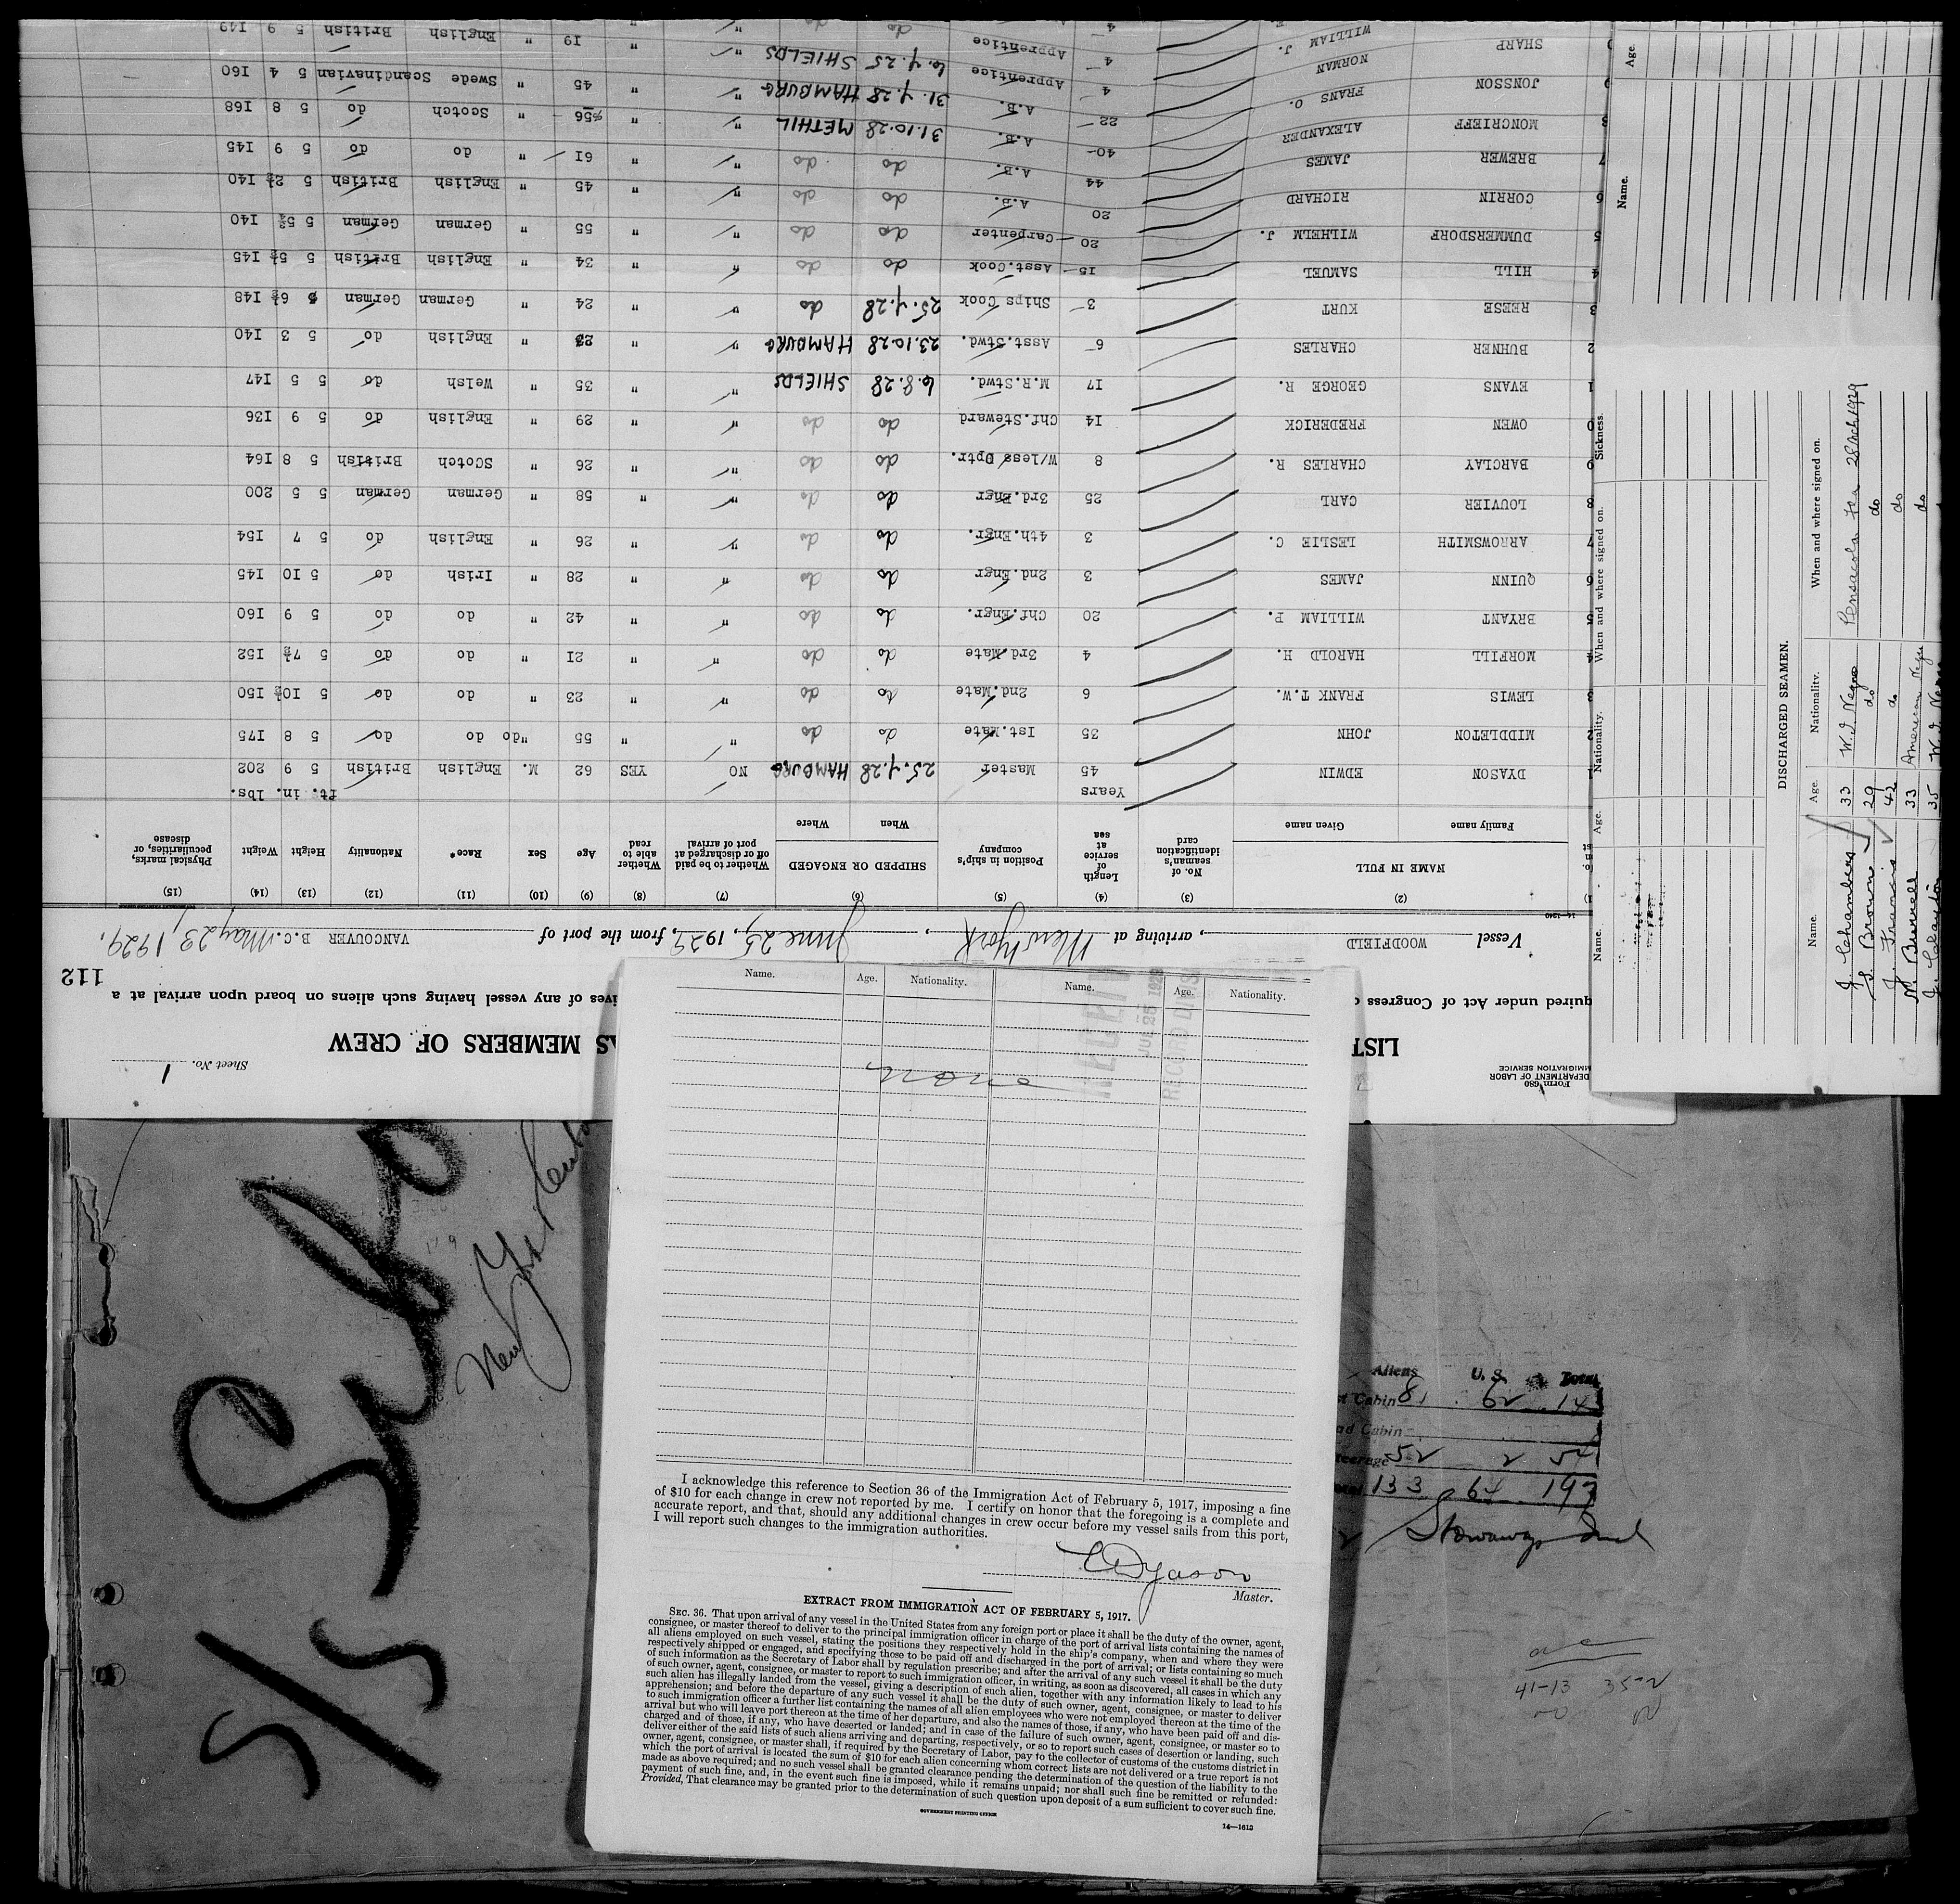 Form 680
DEPARTMENT OF LABOR
IMMIGRATION SERVICE
Sheet No. 1
LIST
AS MEMBERS OF CREW
112
quired under Act of Congress
ives of any vessel having such aliens on board upon arrival at a
Vessel WOODFIELD, arriving at New York, June 25, 1929, from the port of VANCOUVER B.C. May 23, 1929.
14—1240
(2) (3) (4) (5) (6) (7) (8) (9) (10) (11) (12) (13) (14) (15)
NAME IN FULL
Family name Given name
No. of seaman's identification card
Length of service at sea
Position in ship's company
SHIPPED OR ENGAGED
When Where
Whether to be paid off or discharged at port of arrival
Whether able to read
Age Sex Race* Nationality Height Weight
Physical marks, peculiarities, or disease
Years ft. in. lbs.
1 DYASON EDWIN 45 Master 25.7.28 HAMBURG NO YES 62 M. English British 5 9 202
2 MIDDLETON JOHN 35 1st.Mate do do " " 55 "do do do 5 8 175
3 LEWIS FRANK T.W. 6 2nd.Mate do do " " 23 " do do 5 10½ 150
4 MORFILL HAROLD H. 4 3rd.Mate do do " " 21 " do do 5 7½ 152
5 BRYANT WILLIAM P. 20 Chf.Engr. do do " " 42 " do do 5 9 160
6 QUINN JAMES 3 2nd.Engr do do " " 28 " Irish do 5 10 145
7 ARROWSMITH LESLIE C. 3 4th.Engr. do do " " 26 " English do 5 7 154
8 LOUVIER CARL 25 3rd.Engr do do " " 58 " German German 5 5 200
9 BARCLAY CHARLES R. 8 W/less Optr. do do " " 26 " Scotch British 5 8 164
0 OWEN FREDERICK 14 Chf.Steward do do " " 29 " English do 5 9 136
1 EVANS GEORGE R. 17 M.R.Stwd. 6.8.28 SHIELDS " " 35 " Welsh do 5 5 147
2 BUHNER CHARLES 6 Asst.Stwd. 23.10.28 HAMBURG " " 23 " English do 5 3 140
3 REESE KURT 3 Ships Cook 25.7.28 do " " 24 " German German 5 6½ 148
4 HILL SAMUEL 15 Asst.Cook do do " " 34 " English British 5 5½ 145
5 DUMMERSDORF WILHELM J. 20 Carpenter do do " " 55 " German German 5 5¾ 140
6 CORRIN RICHARD 20 A.B. do do " " 45 " English British 5 2½ 140
7 BREWER JAMES 44 A.B. do do " " 61 " do do 5 9 145
8 MONCRIEFF ALEXANDER 40 A.B. 31.10.28 METHIL " " 56 " Scotch do 5 8 168
JONSSON FRANS O. 22 A.B. 31.7.28 HAMBURG " " 45 " Swede Scandinavian 5 4 160
SHARP NORMAN 4 Apprentice 6.7.25 SHIELDS " " 19 " English British 5 9 149
WILLIAM J. 4 Apprentice do do
Name. Age.
Name. Age. Nationality. When and where signed on. Sickness.
DISCHARGED SEAMEN.
Name. Age. Nationality. When and where signed on.
J. Chambers 33 W.I Negro Pensacola Fla 28 Mch 1929
S. Brown 29 do do
J. Francis 42 do do
N. Burrell 33 American Negro do
J. Clayton 35 W.I Negro
Name. Age. Nationality. Name. Age. Nationality.
none
JUN 25 192
RECORD DIVIS
I acknowledge this reference to Section 36 of the Immigration Act of February 5, 1917, imposing a fine
of $10 for each change in crew not reported by me. I certify on honor that the foregoing is a complete and
accurate report, and that, should any additional changes in crew occur before my vessel sails from this port,
I will report such changes to the immigration authorities.
E Dyason
Master.
EXTRACT FROM IMMIGRATION ACT OF FEBRUARY 5, 1917.
SEC. 36. That upon arrival of any vessel in the United States from any foreign port or place it shall be the duty of the owner, agent,
consignee, or master thereof to deliver to the principal immigration officer in charge of the port of arrival lists containing the names of
all aliens employed on such vessel, stating the positions they respectively hold in the ship's company, when and where they were
respectively shipped or engaged, and specifying those to be paid off and discharged in the port of arrival; or lists containing so much
of such information as the Secretary of Labor shall by regulation prescribe; and after the arrival of any such vessel it shall be the duty
of such owner, agent, consignee, or master to report to such immigration officer, in writing, as soon as discovered, all cases in which any
such alien has illegally landed from the vessel, giving a description of such alien, together with any information likely to lead to his
apprehension; and before the departure of any such vessel it shall be the duty of such owner, agent, consignee, or master to deliver
to such immigration officer a further list containing the names of all alien employees who were not employed thereon at the time of the
arrival but who will leave port thereon at the time of her departure, and also the names of those, if any, who have been paid off and dis-
charged and of those, if any, who have deserted or landed; and in case of the failure of such owner, agent, consignee, or master so to
deliver either of the said lists of such aliens arriving and departing, respectively, or so to report such cases of desertion or landing, such
owner, agent, consignee, or master shall, if required by the Secretary of Labor, pay to the collector of customs of the customs district in
which the port of arrival is located the sum of $10 for each alien concerning whom correct lists are not delivered or a true report is not
made as above required; and no such vessel shall be granted clearance pending the determination of the question of the liability to the
payment of such fine, and, in the event such fine is imposed, while it remains unpaid; nor shall such fine be remitted or refunded:
Provided, That clearance may be granted prior to the determination of such question upon deposit of a sum sufficient to cover such fine.
GOVERNMENT PRINTING OFFICE
14—1613
S/S
New York
Aliens U. S. Total
Cabin 81 62 14
Cabin
52 2 54
133 64 197
Stowaways
41-13 352